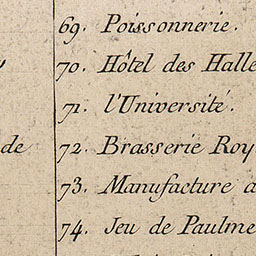 69. Poissonnerie.
70. Hôtel des Halle
71. l'Université.
de 72. Brasserie Roy
73. Manufacture a
74. Jeu de Paulme